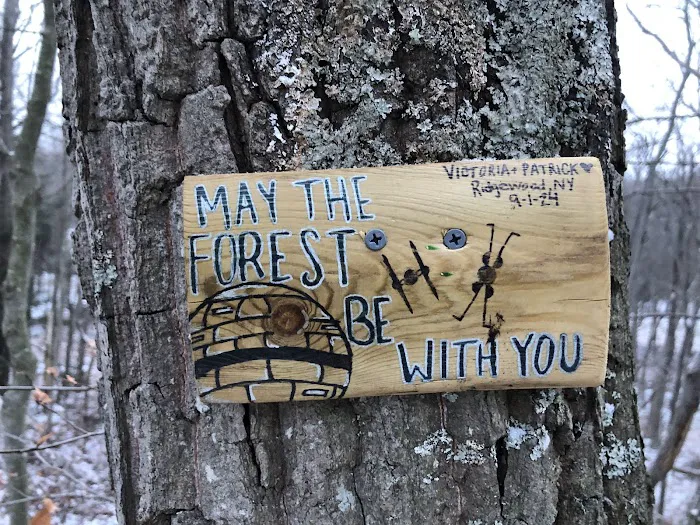 MAY THE
FOREST
BE
WITH YOU
VICTORIA + PATRICK
Ridgewood, NY
9-1-24